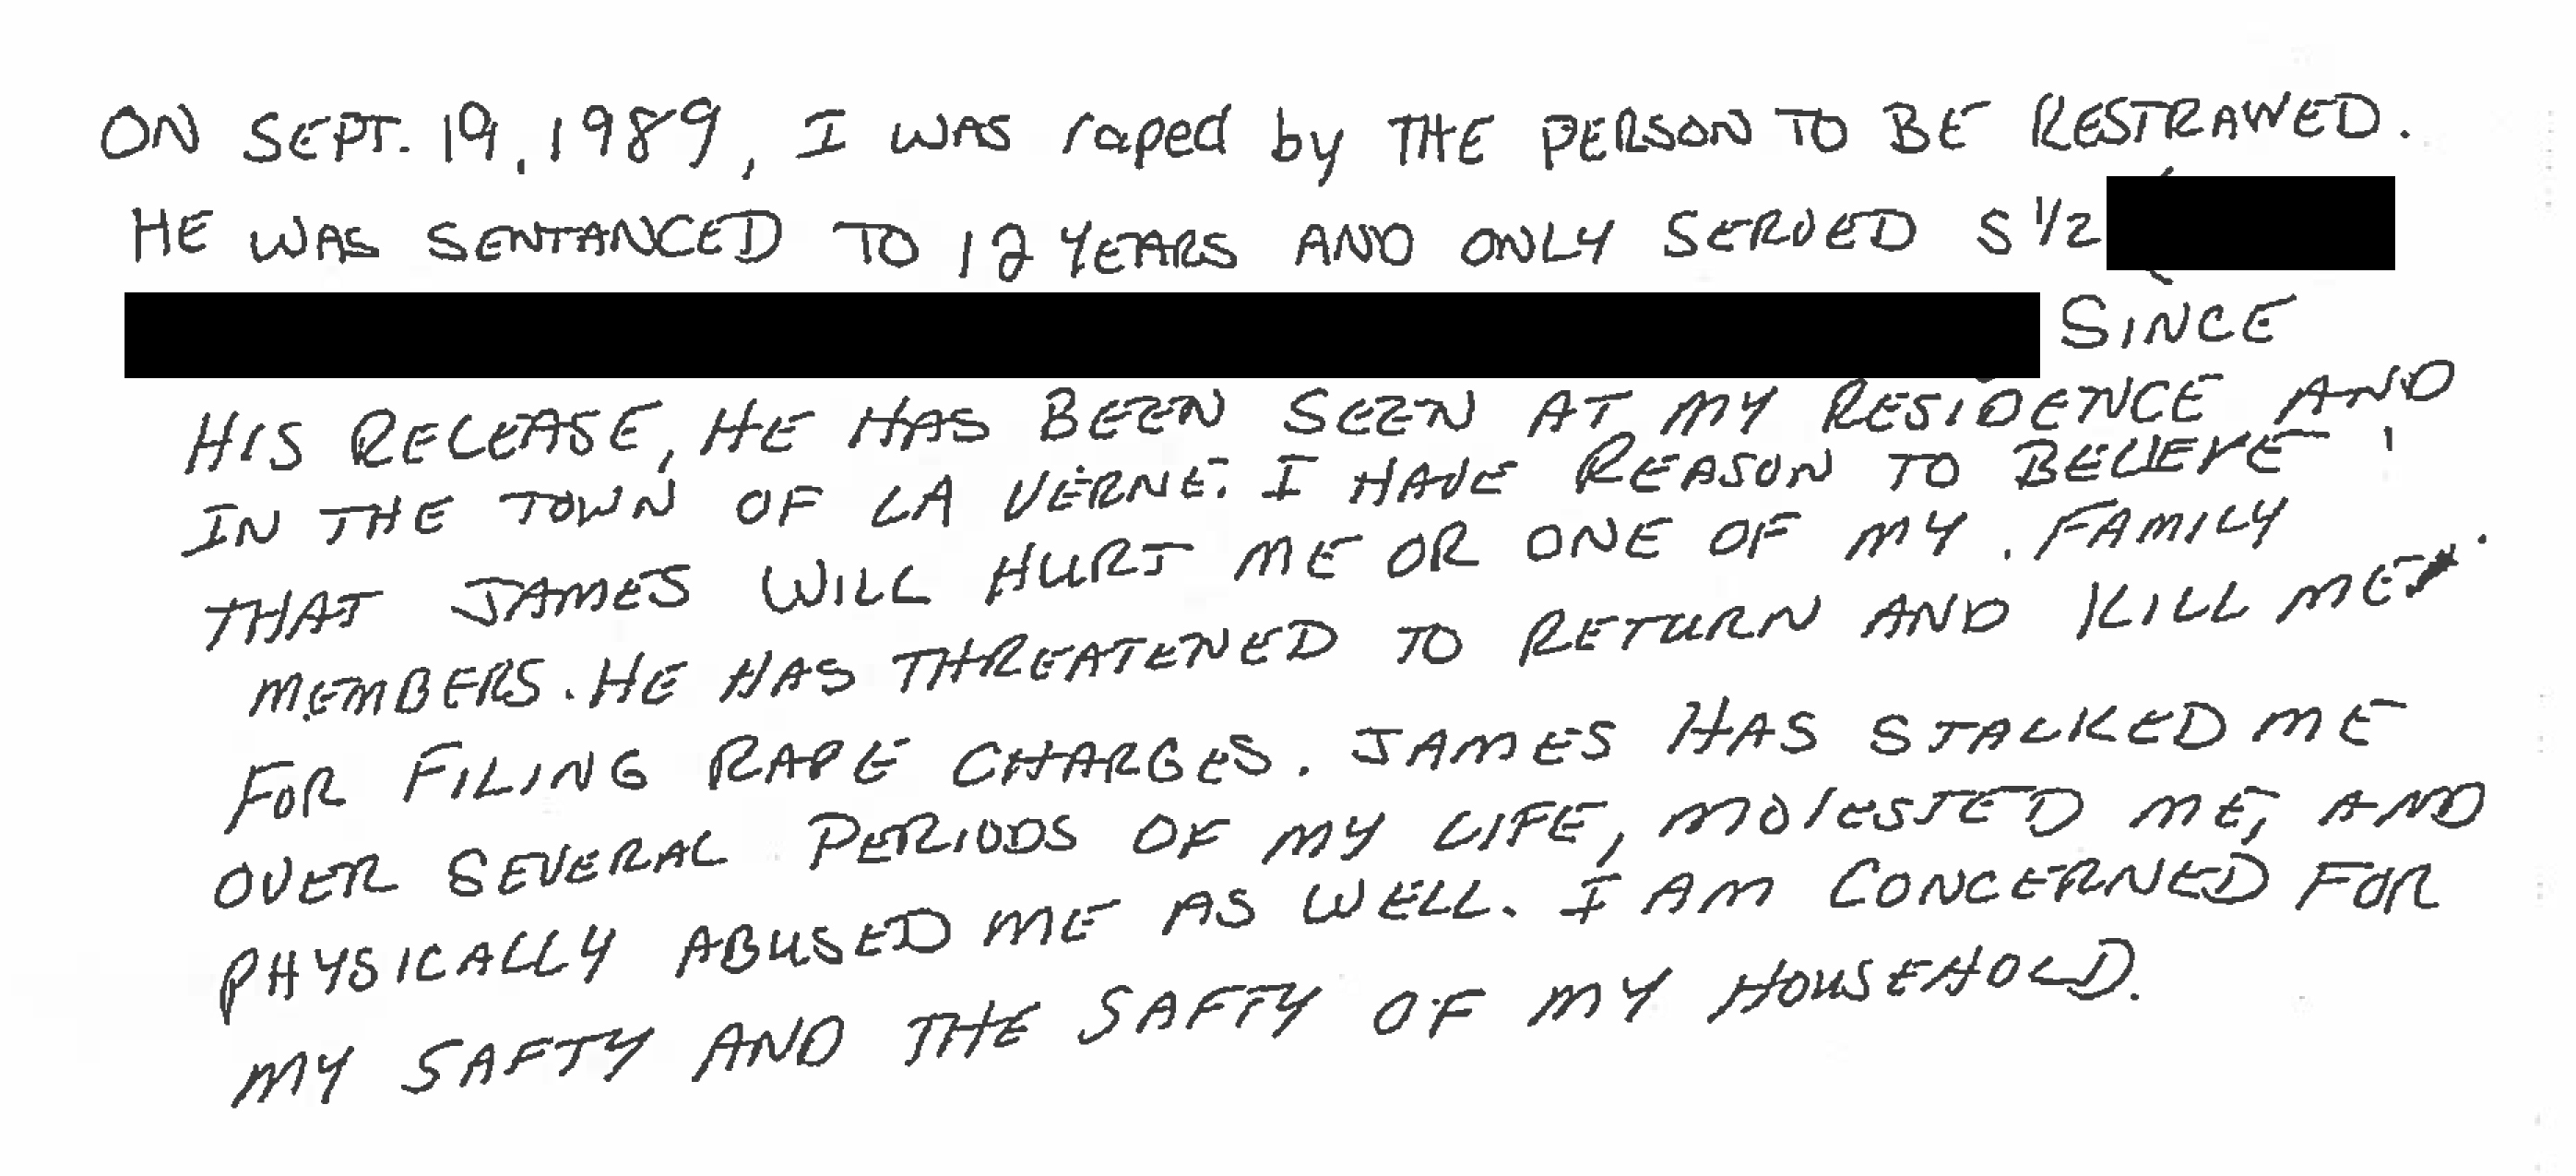 ON SEPT. 19, 1989, I WAS raped by THE PERSON TO BE RESTRAINED.
HE WAS SENTANCED TO 12 YEARS AND ONLY SERVED 5 1/2
SINCE
HIS RELEASE, HE HAS BEEN SEEN AT MY RESIDENCE AND
IN THE TOWN OF LA VERNE. I HAVE REASON TO BELIEVE
THAT JAMES WILL HURT ME OR ONE OF MY FAMILY
MEMBERS. HE HAS THREATENED TO RETURN AND KILL ME.
FOR FILING RAPE CHARGES. JAMES HAS STALKED ME
OVER SEVERAL PERIODS OF MY LIFE, MOlESTED ME, AND
PHYSICALLY ABUSED ME AS WELL. I AM CONCERNED FOR
MY SAFTY AND THE SAFTY OF MY HOUSEHOLD.